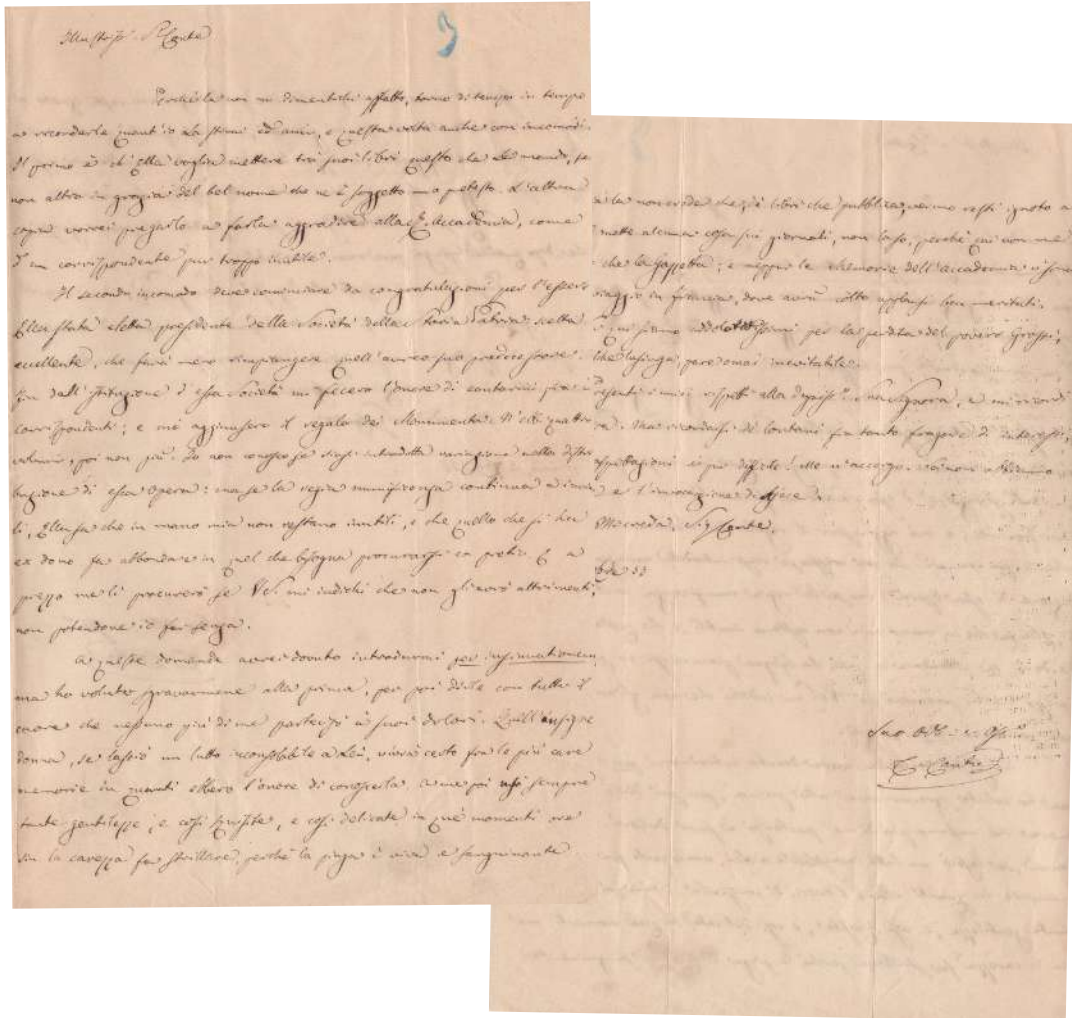 Illustriss. Sr Conte
Perché la non mi dimentichi affatto, torno di tempo in tempo
a ricordarle quant'io La stimi ed ami, e questa volta anche con incomodi.
Il primo è ch'Ella voglia mettere tra' suoi libri questo che Le mando, se
non altro in grazia del bel nome che ne è soggetto o pretesto. L'altra
copia vorrei pregarlo a farla aggradire alla R. Accademia, come
d'un corrispondente pur troppo inutile.
Il secondo incomodo deve cominciare da congratulazioni per l'essere
Ella stata eletta presidente della Società della Storia Patria: scelta
eccellente, che farà meno rimpiangere quell'aureo suo predecessore.
Fin dall'istituzione d'essa Società mi fecero l'onore di contarmi fra i
corrispondenti; e mi aggiunsero il regalo dei Monumenta. N'ebbi quattro
volumi, poi non più. Io non conosco se siasi introdotta variazione nella distri
buzione di essa opera: ma se la regia munificenza continua a
li, Ella sa che in mano mia non restano inutili, e che quello che si ha
ex dono fa abbondare in quel che bisogna procurarsi ex pretio. E a
prezzo me li procurerò se VS. mi indichi che non gli avrò altrimenti,
non potendone io far senza.
A queste domande avrei dovuto introdurmi per insinuationem,
ma ho voluto sgravarmene alla prima, per poi dirle con tutto il
cuore che nessuno più di me partecipò a' suoi dolori. Quell'insigne
donna, se lasciò un lutto inconsolabile a Lei, vivrà certo fra le più care
memorie in quanti ebbero l'onore di conoscerla. A me poi usò sempre
tante gentilezze, e così squisite, e così delicate in que' momenti ove
sin la carezza fa strillare, perché la piaga è viva e sanguinante
la non creda che, de' libri che pubblica, veruno resti ignoto a
mette alcuna cosa sui giornali, non la so, perché qui non
che la Gazzetta; e neppur le Memorie dell'accademia
viaggio in Francia, dove avrà còlto applausi ben meritati.
qui siamo addoloratissimi per la perdita del povero Grossi,
che lusinga, pare omai inevitabile.
Presenti i miei rispetti alla Sua Signora, e mi ricordi
Ma ricordarsi di lontani fra tanto fragore di interessi,
aspettazioni è più difficile! Me n'accorgo.
e l'invocazione di
Mi creda, Sig Conte,
53
Suo
C. Cantù